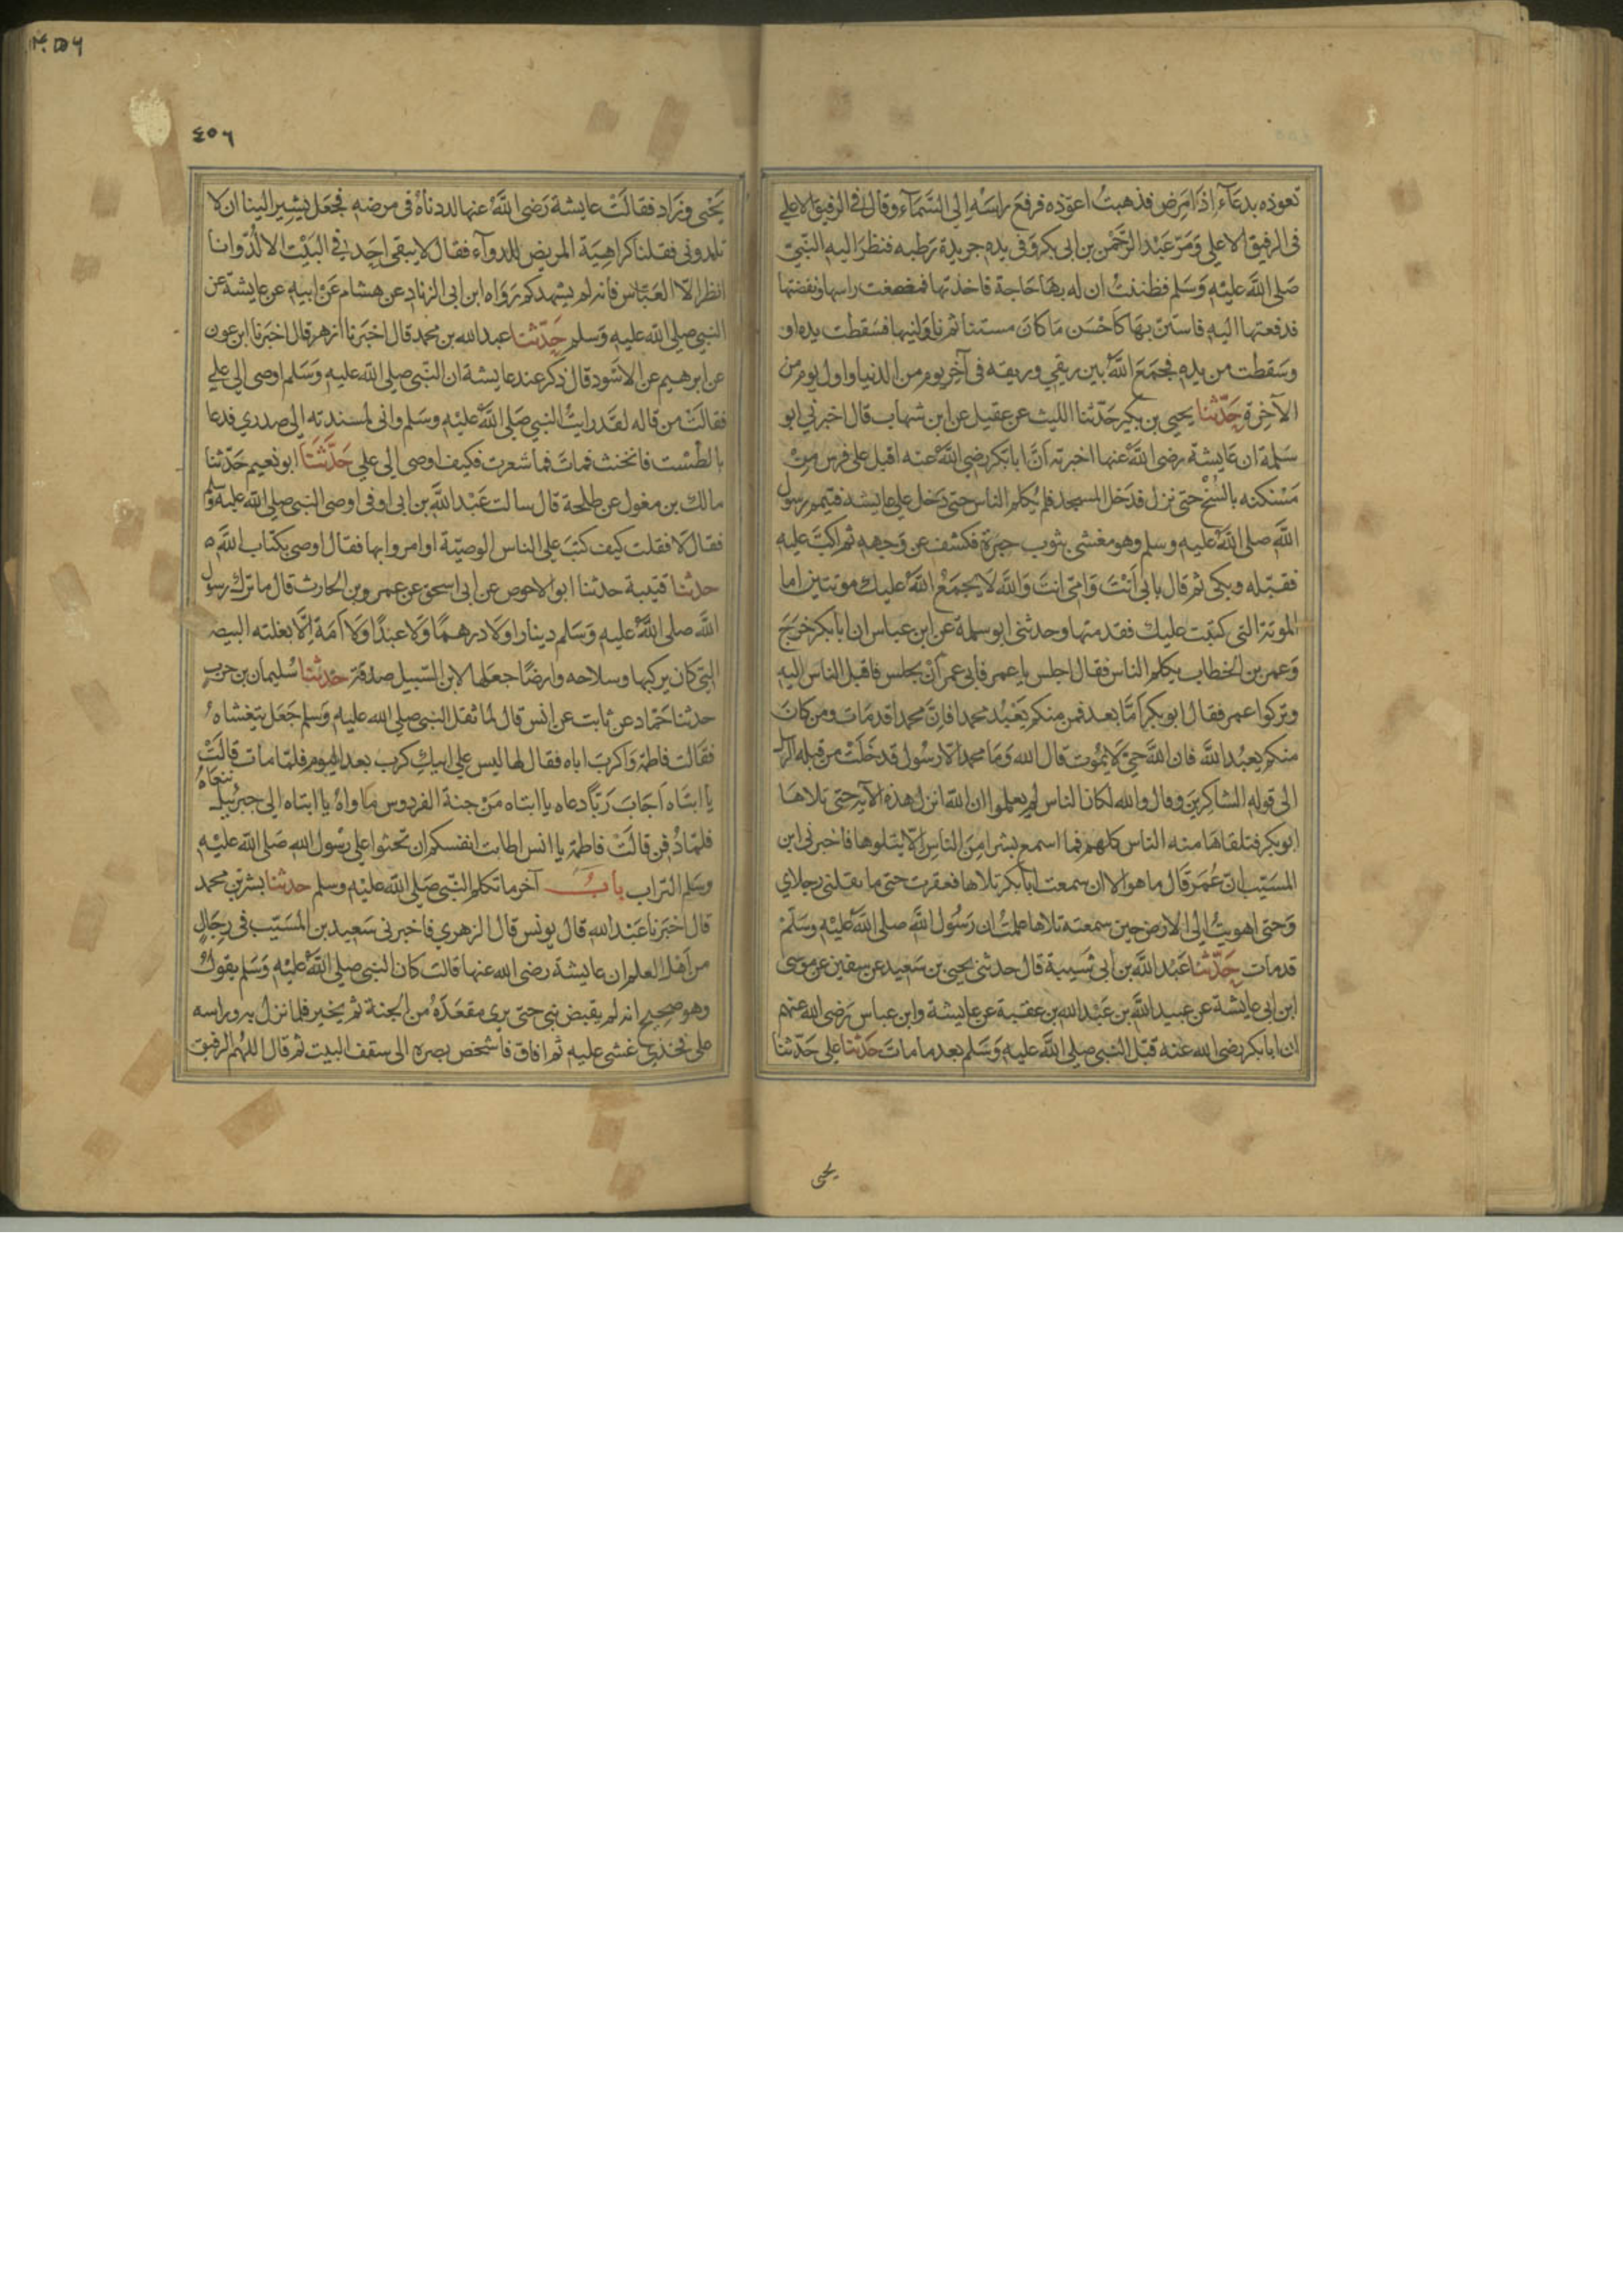 تعوذه بدعآء اِذَا مَرِض فذهبتُ اعوّذه فرفعَ راسَه اِلى السَّمَآء وقال في الرفيق الاعلي
فى الرفيق الاعلي وَمَرّ عَبْد الرَّحْمٰن بن ابى بكر وَفى يده جريدة رَطبه فنظرَ اليه النّبيّ
صَلى اللَّه عليْهِ وَسَلم فظننتُ ان له بهَا حَاجة فاخذتها فمضغت راسها ونفضتها
فدفعتها اليه فاستَنّ بهَا كَاَحْسَن مَا كانَ مستنا ثم ناوَلنيها فسَقطت يده او
وسَقطت من يده فجَمَعَ اللَّهُ بين ريقي وريقه فى آخِر يوم من الدنيا واول يوم من
الآخِرة حَدّثنا يحيى بن بكير حَدّثنا الليث عن عقيل عن ابن شهاب قال اخبرني ابو
سَلمة ان عَايشة رضى اللَّهُ عنها اخبرته اَنّ ابا بَكر رضى اللَّهُ عنه اقبل على فرس مِنْ
مَسْكنه بالسُّنْح حتى نزل فدَخل المسجد فلم يُكلم الناس حتى دَخل على عايشة فتيمم رسول
اللَّه صلى اللَّهُ عليه وسلم وهو مغشى بثوب حِبرَة فكشف عن وَجهه ثم اكبّ عليه
فقبّله وبكى ثم قال بابى اَنْتَ وَامّى انتَ وَاللَّه لَا يجمَعُ اللَّهُ عليك موتتين اما
الموتة التى كتبت عليك فقد متها وحدثنى ابو سلمة عن ابن عباس ان ابا بكر خرَجَ
وَعمر بن الخطاب يكلم الناس فقال اجلس يا عمر فابى عمر اَنْ يجلس فاقبل الناس اليه
وتركوا عمر فقال ابو بكر اَمّا بعد فمن منكم يَعْبُد محمدا فاِنّ محمدا قد مَات ومن كانَ
منكم يعبُد اللَّه فان اللَّه حىّ لَا يمُوت قال الله وَمَا محمد اِلّا رسُول قد خَلَتْ من قبله الرسل
الى قوله الشاكرين وقال والله لكان الناس لم يعلموا ان الله انزل هذه الآية حتى تلاهَا
ابو بكر فتلقاهَا منه الناس كلهم فما اسمع بشرا مِنَ الناس اِلّا يتلوها فاخبرنى ابن
المسَيّب انّ عُمَر قال ما هو الا ان سمعت ابا بَكر تلاها فعقرت حتى ما يقلنى رجلاي
وَحتى اهويتُ اِلى الارض حين سمعته تلاها علمتُ ان رَسُول اللَّه صلى اللَّهُ عليْهِ وَسَلّمْ
قد مات حَدّثنا عَبْد اللَّه بن ابى شَيبة قال حدثنى يحيى بن سَعيد عن سفين عن موسَى
ابن ابى عايشة عن عبيد اللَّه بن عَبْد الله بن عقبة عن عايشة وابن عباس رَضى الله عنهم
ان ابا بكر رضى الله عنه قبّل النبى صلى اللَّه عليه وَسَلم بعد ما ماتَ حَدّثنا على حَدّثنا
يحيى
٤٥٦
يَحْيى وزَاد فقالَتْ عايشة رَضى اللَّه عنها لددناهُ فى مرضه فجَعَل يشير الينا ان لَا
تلدونى فقلنا كراهِيَة المريض للدوآء فقال لا يبقى احَد في البَيْت الا لُدّ وانا
انظر الّا العَبّاس فانه لم يشهدكم رَوَاه ابن ابى الزناد عن هشام عَنْ ابيه عن عايشة عن
النبى صلى الله عليه وَسلم حَدّثنا عبد الله بن محمد قال اخبَرنا ازهر قال اخبَرنا ابن عون
عن ابرهيم عن الاسْوَد قال ذكر عند عايشة ان النّبى صلى الله عليه وَسَلم اوصى الى على
فقالتْ من قاله لقَد رايتُ النبى صَلى اللَّهُ عليْهِ وسَلم وانى لمسندته الى صدري فدعا
بالطسْت فانخنث فماتَ فما شعرت فكيف اوصى الى على حَدَّثنَا ابو نعيم حَدّثنا
مالك بن مغول عن طلحة قال سالت عَبْد اللَّه بن ابى اوفى اوصى النبى صلى الله عليه وسلم
فقال لَا فقلت كيف كتبَ على الناس الوصيّة او امروا بها فقال اوصى بكتاب اللَّه ه
حدثنا قتيبة حدثنا ابو الاحوص عن ابى اسحق عن عمرو بن الحارث قال ما ترك رسول
اللَّه صلى اللَّهُ عليه وَسَلم دينارا ولَا درهمًا وَلَا عبْدًا وَلَا اَمَة اِلّا بغلته البيضا
التى كان يركبها وسلاحه وارضًا جعَلها لابن السّبيل صدقة حدثنا سُليمان بن حرب
حدثنا حَمّاد عن ثابت عن انس قال لما ثقل النبى صلى الله عليه وَسلم جَعَل يتغشاه
فقَالت فاطمة وَاكربَ اباه فقال لها ليس على ابيكِ كرب بعد اليوم فلمّا مات قالَتْ
يا ابتَاه اَجَابَ رَبًّا دعاه يا ابتاه مَنْ جنة الفردوس مَاواهُ يا ابتاه الى جبرئيل ننعَاهُ
فلمّا دُفن قالَتْ فاطمة يا انس اطابت انفسكم ان تحثوا على رسُول الله صَلى الله عليْهِ
وسَلم التراب بابُ آخر ما تكلم النّبى صَلى الله عليْهِ وسلم حدثنا بشر بن محمد
قال اخبَرنا عَبْد الله قال يونس قال الزهري فاخبرنى سَعيد بن المسَيّب فى رجَالٍ
من اهْل العلم ان عايشة رضى الله عنها قالت كان النبى صلى اللَّهُ عليْهِ وَسَلم يقولُ
وهو صحِيح انه لم يقبض نبى حتى يرى مقعَدَهُ من الجنة ثم يخير فلما نزل به وراسه
على فخذي غشى عليه ثم افاق فاشخص بصره الى سقف البيت ثم قال اللهُم الرفيق